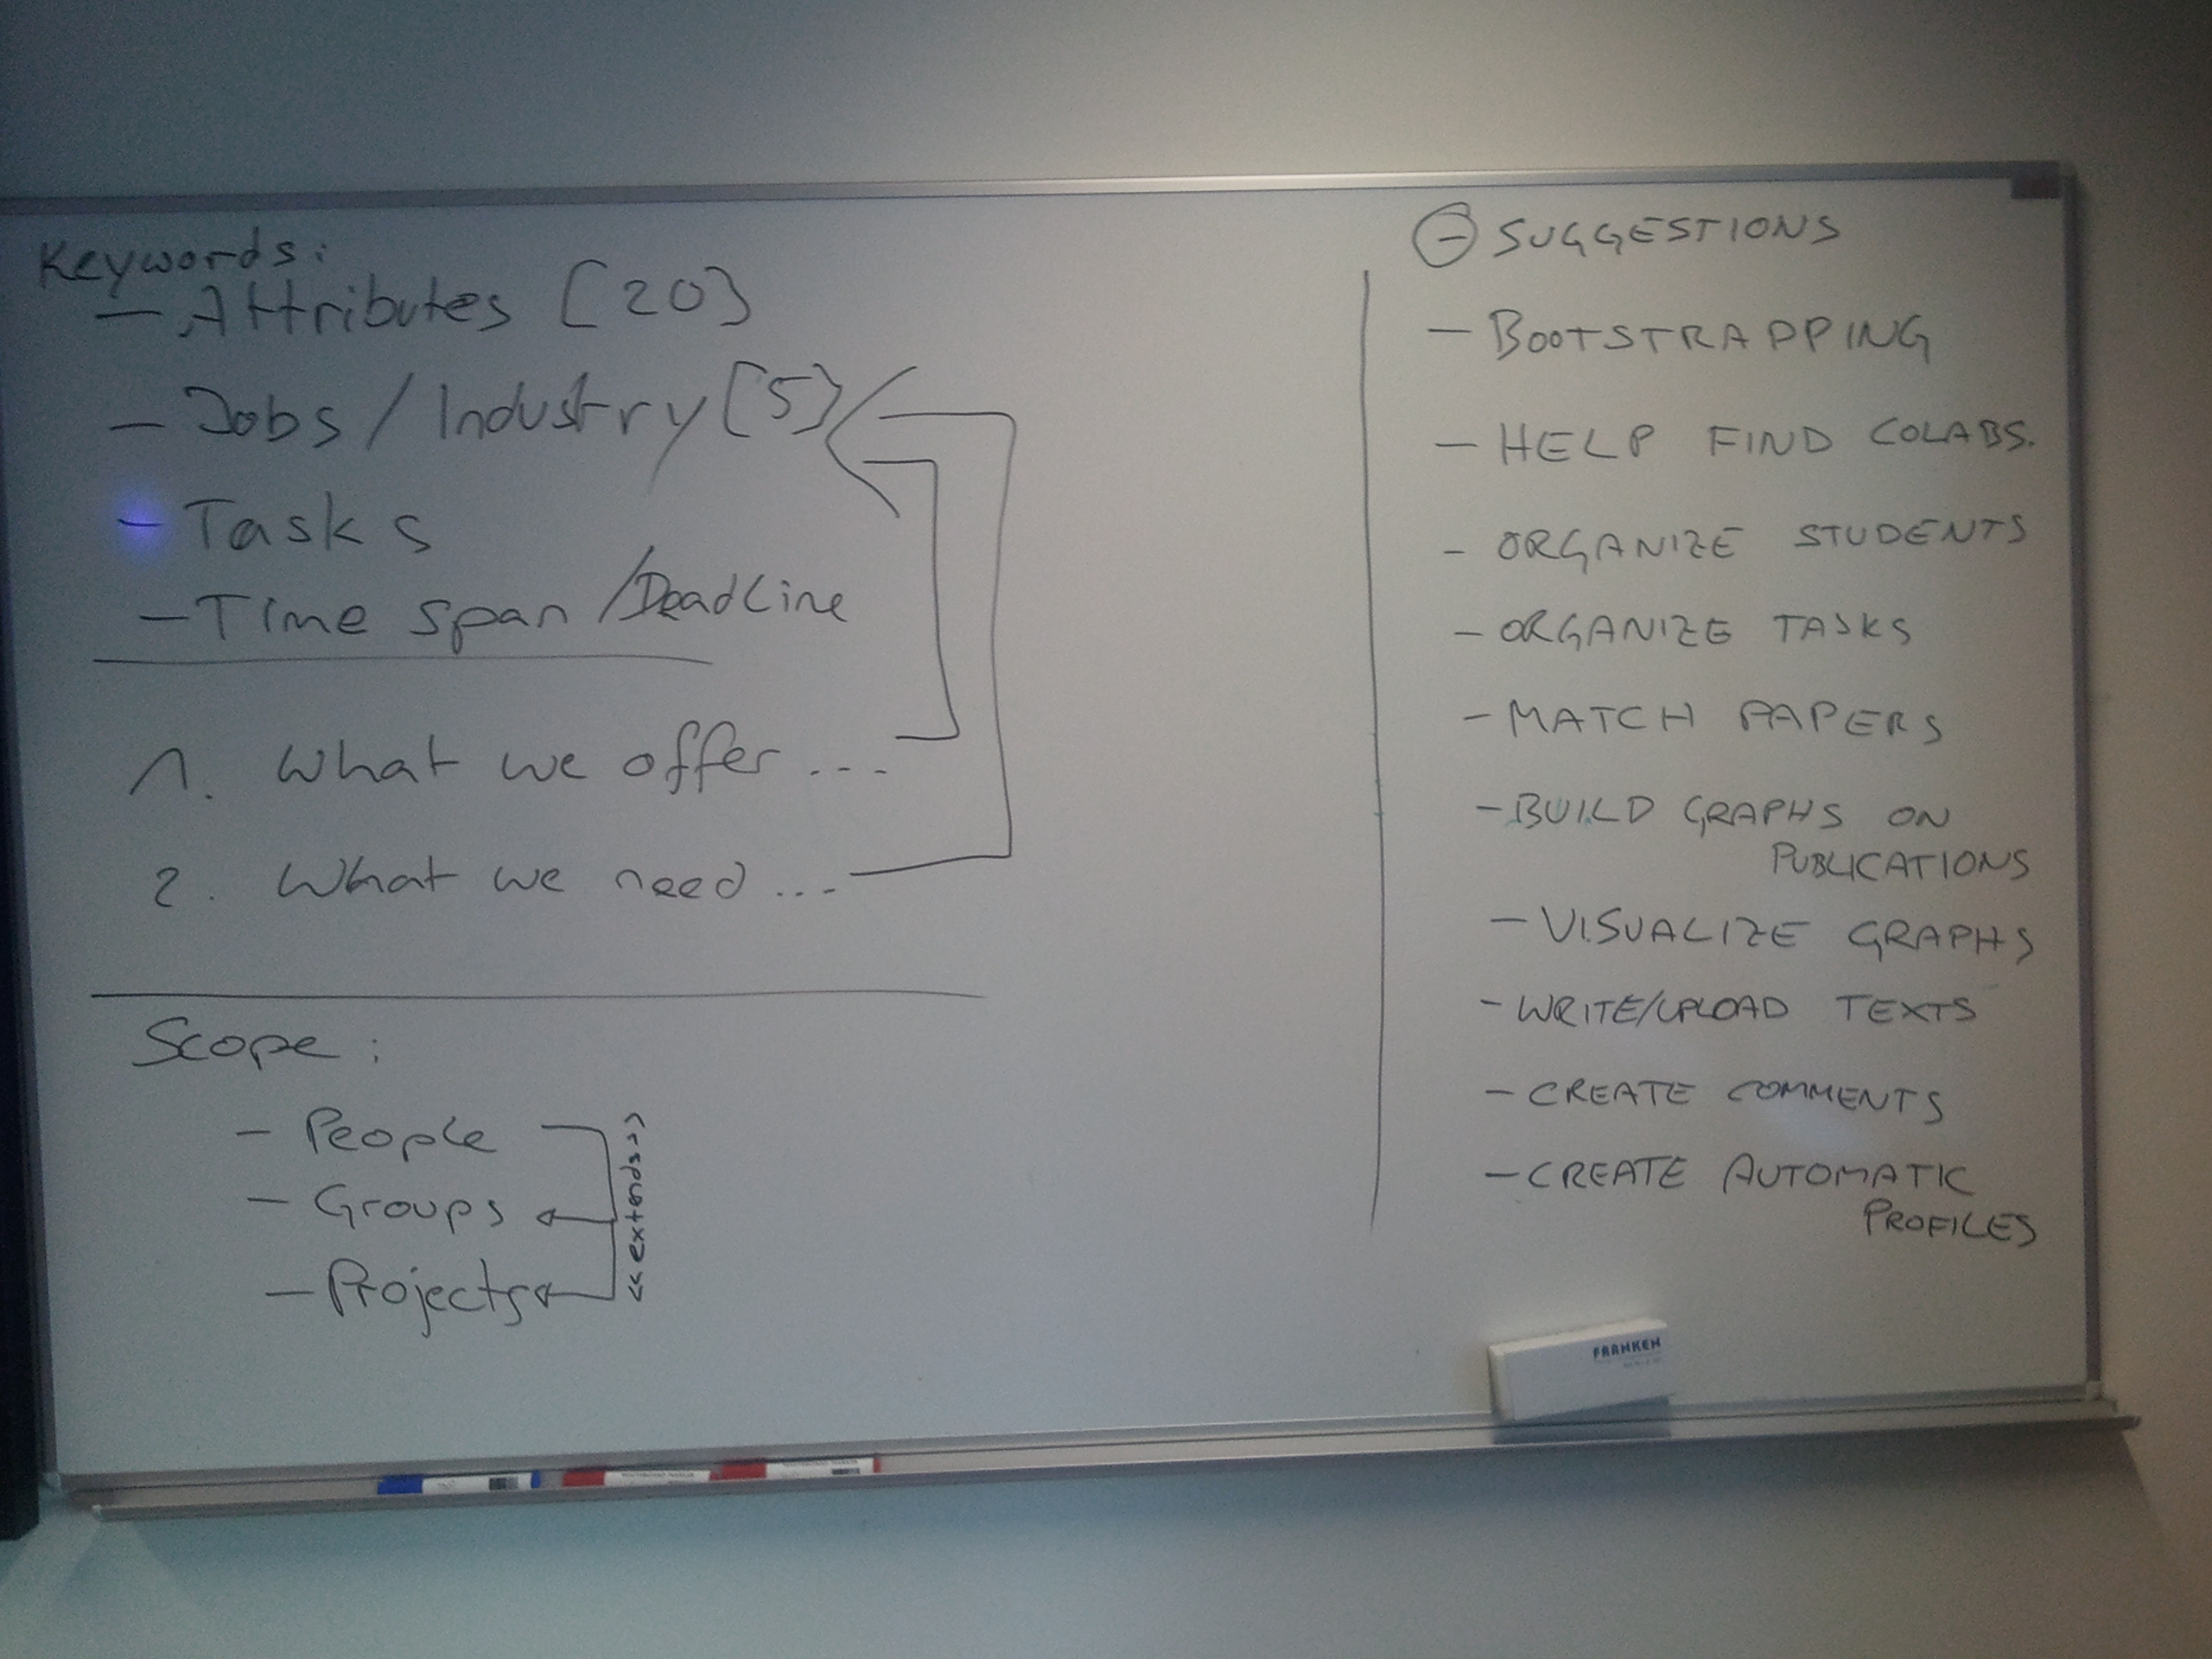 Keywords:
- Attributes [20]
- Jobs / Industry [5]
- Tasks
- Time span / Deadline
1. What we offer ...
2. What we need ...
Scope:
- People
- Groups
- Projects
<<extends>>
- SUGGESTIONS
- BOOTSTRAPPING
- HELP FIND COLABS.
- ORGANIZE STUDENTS
- ORGANIZE TASKS
- MATCH PAPERS
- BUILD GRAPHS ON
PUBLICATIONS
- VISUALIZE GRAPHS
- WRITE/UPLOAD TEXTS
- CREATE COMMENTS
- CREATE AUTOMATIC
PROFILES
FRANKEN